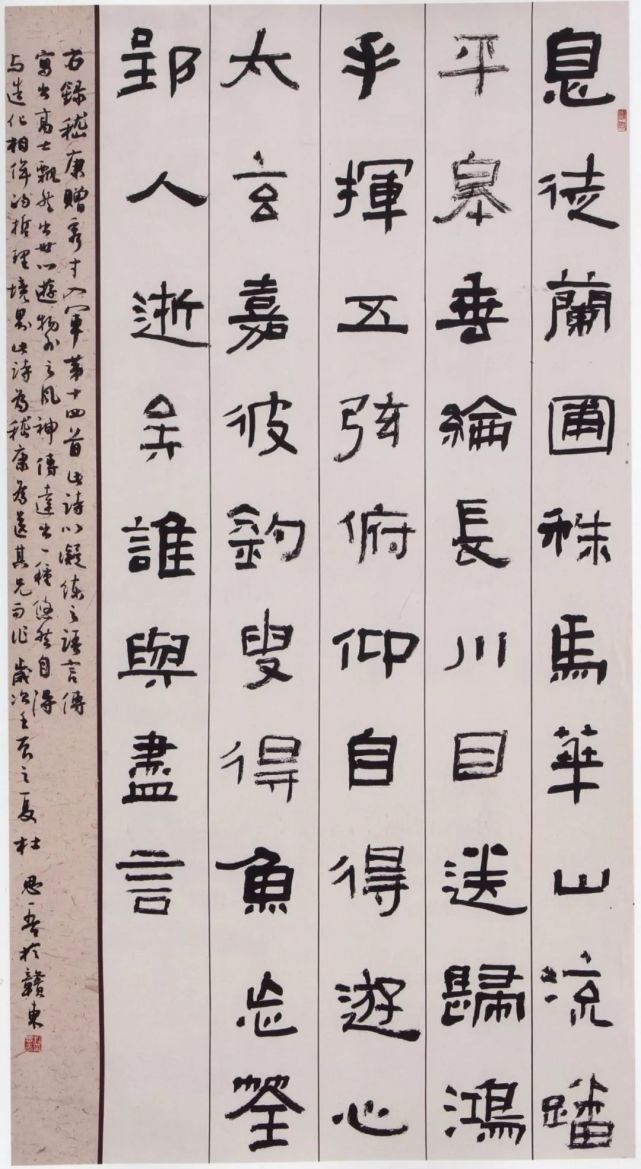 息徒蘭圃秣馬華山流磻
平皋垂綸長川目送歸鴻
手揮五弦俯仰自得遊心
太玄嘉彼釣叟得魚忘筌
郢人逝矣誰與盡言
右錄嵇康贈秀才入軍第十四首此詩以凝练之語言傳
寫出高士飄然出世心遊物外之風神傳達出一種悠然自得
与造化相侔的哲理境界此詩為嵇康為送其兄而作歲次壬辰之夏杜思吾於贛東